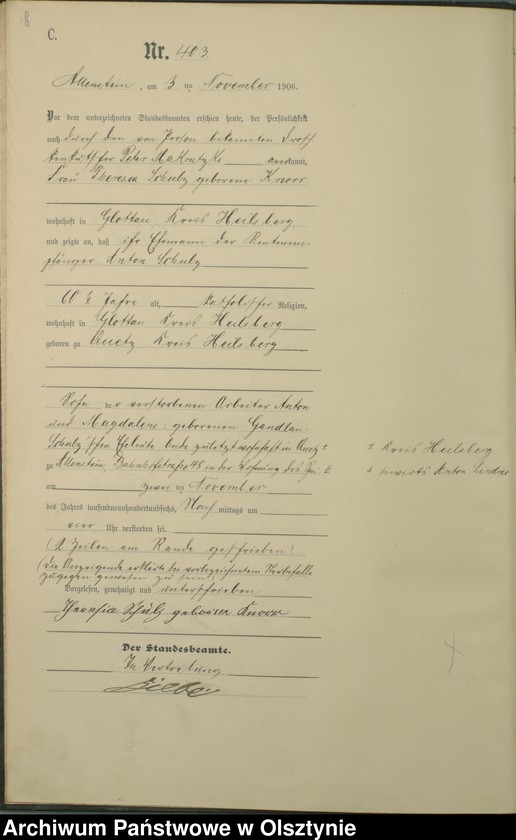 8
C.
Nr. 403
Allenstein, am 3 ten November 1906.
Vor dem unterzeichneten Standesbeamten erschien heute, der Persönlichkeit
nach durch den von Person bekannten Drosch-
kenkutscher Peter Makrutzki anerkannt,
Frau Theresia Schulz geborene Knorr
wohnhaft in Glottau Kreis Heilsberg
und zeigte an, daß ihr Ehemann der Rentenem-
pfänger Anton Schulz
60 ½ Jahre alt, katholischer Religion,
wohnhaft in Glottau Kreis Heilsberg
geboren zu Quetz Kreis Heilsberg
Sohn der verstorbenen Arbeiter Anton
und Magdalene, geborenen
Schulz'schen Eheleute beide zuletzt wohnhaft in Quetz
Kreis Heilsberg
zu Allenstein, Bahnhofstraße 45 in der Wohnung des
Anton
am zwei ten November
des Jahres tausendneunhundertundsechs, Nach mittags um
vier Uhr verstorben sei.
(2 Zeilen am Rande geschrieben)
(Die Anzeigende erklärte bei vorbezeichnetem Sterbefalle
zugegen gewesen zu sein)
Vorgelesen, genehmigt und unterschrieben
Theresia Schulz geborene Knorr
Der Standesbeamte.
In Vertretung
Archiwum Państwowe w Olsztynie